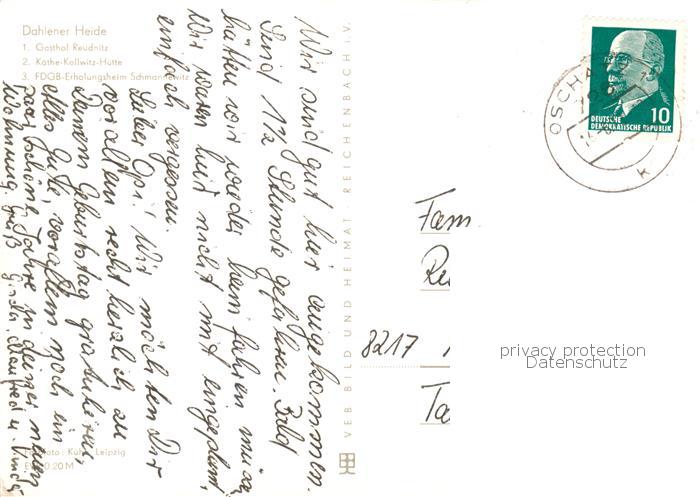 Dahlener Heide
1. Gasthof Reudnitz
2. Käthe-Kollwitz-Hütte
3. FDGB-Erholungsheim Schmannewitz
Wir sind gut hier angekommen.
Sind 1 1/2 Stunde gefahren. Bald
hätten wir wieder heim fahren müssen
Wir waren mit nicht mit eingeplant,
einfach vergessen.
Lieber Opi! Wir möchten Dir
vor allem recht herzlich zu
Deinem Geburtstag gratulieren,
alles Gute, vor allem noch ein
paar schöne Jahre in deiner neuen
Wohnung. Manfred u.
VEB BILD UND HEIMAT · REICHENBACH i.V.
Leipzig
0.20 M
OSCHA
k
10
DEUTSCHE
DEMOKRATISCHE REPUBLIK
Fam
Re
8217
Ta
privacy protection
Datenschutz